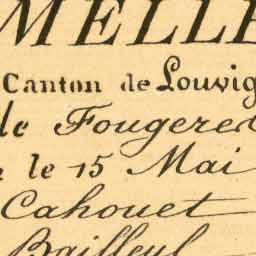 MELLE
Canton de Louvig
de Fougeres
le 15 Mai
Cahouet
Bailleul